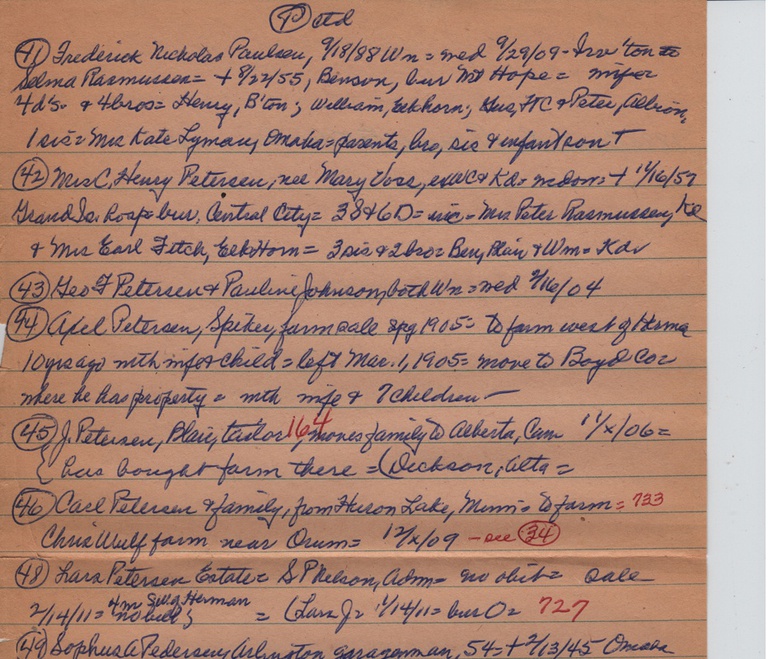 (P) ctd
(41) Frederick Nicholas Paulsen, 9/18/88 Wn = med 9/29/09 - Irv'ton to
Selma Rasmussen = + 8/22/55, Benson, bur Mt Hope = wife
4 d's & 4 bros = Henry, B'ton; William, Elkhorn; Gus, HC & Peter, Albion,
1 sis = Mrs Kate Lyman, Omaha = parents, bro, sis & infant son +
(42) Mrs C. Henry Petersen, nee Mary Voss, ex WC & Kd = + 11/16/57
Grand Is. hosp = bur. Central City = 3 S & 6 D = Mrs Peter Rasmussen, Kd
& Mrs Earl Fitch, Elk Horn = 3 sis & 2 bro = Ben, Blair & Wm = Kdv
(43) Geo F Petersen & Pauline Johnson, both Wn = med 2/16/04
(44) Axel Petersen, Spiker, farm sale spg 1905 = to farm west of Herma
10 yrs ago with wife & child = left Mar. 1, 1905 = move to Boyd Co =
where he has property = with wife & 7 children -
(45) J. Petersen, Blair, tailor 164, moves family to Alberta, Can 11/x/06 =
{ has bought farm there = (Dickson, Alta =
(46) Carl Petersen & family, from Heron Lake, Minn = to farm = 733
Chris Wulf farm near Orum = 12/x/09 - see (34)
(48) Lars Petersen Estate = S P Nelson, Adm = no obit = sale
2/14/11 = 4 m SW of Herman = (Lars J = 1/14/11 = bur O = 727
(49) Sophus A Pedersen, Arlington garageman, 54 = + 2/13/45 Omaha